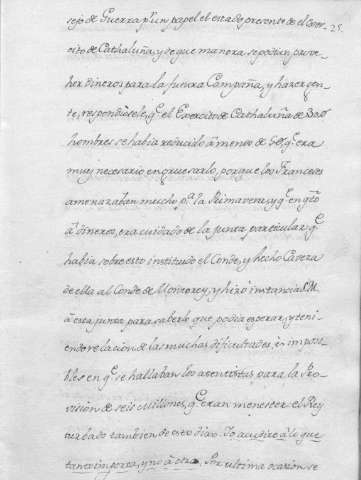 sejo de Guerra pr. un papel el estado presente de el Exer- 25.
cito de Cathaluña, y de que manera se podian prove-
her dineros para la futura Campaña, y hazer gen-
te, respondiosele, q.e el Exercito de Cathaluña de
hombres se habia reducido à menos de q.e era
muy necesario engruesarlo, porque los Franceses
amenazaban mucho p.a la Primavera, y q.e en q.to
à dineros, era cuidado de la junta particular q.e
habia sobre esto instituido el Conde, y hecho Caveza
de ella al Conde de Monterey, y hizo instancia S.M.
à esta junta para saber lo que podia esperar, y teni-
endo relacion de las muchas dificultades, è imposi-
bles en q.e se hallaban los asentistas para la Pro-
vision de seis millones, q.e eran menester el Rey
turbado tambien de esto dixo. Yo acudire à lo que
tanto importa, y no à otra. Por ultima ocasion se